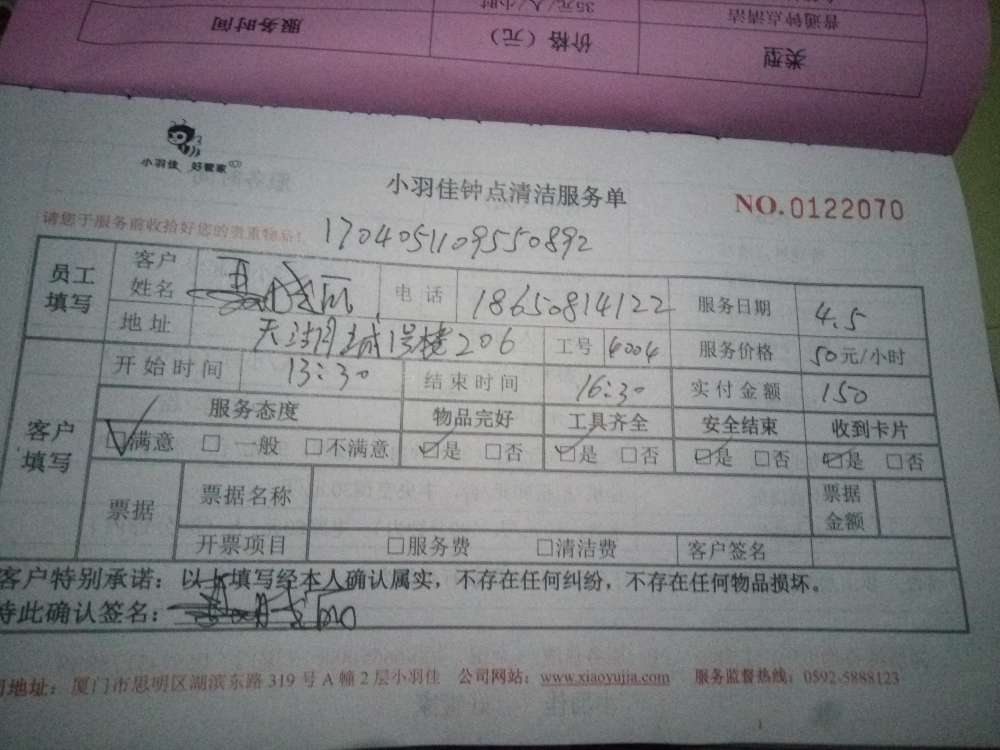 服务时间 价格（元） 类型
35元/人/小时 普通钟点清洁
小羽佳 好管家
小羽佳钟点清洁服务单
NO.0122070
请您于服务前收拾好您的贵重物品！
1704051109550892
员工填写 客户姓名 电话 18650814122 服务日期 4.5
地址 1号楼206 工号 6004 服务价格 50元/小时
客户填写 开始时间 13:30 结束时间 16:30 实付金额 150
服务态度 物品完好 工具齐全 安全结束 收到卡片
☑满意 □一般 □不满意 ☑是 □否 ☑是 □否 ☑是 □否 ☑是 □否
票据 票据名称 票据金额
开票项目 □服务费 □清洁费 客户签名
客户特别承诺：以上填写经本人确认属实，不存在任何纠纷，不存在任何物品损坏。
特此确认签名：
地址：厦门市思明区湖滨东路319号A幢2层小羽佳 公司网站：www.xiaoyujia.com 服务监督热线：0592-5888123
1